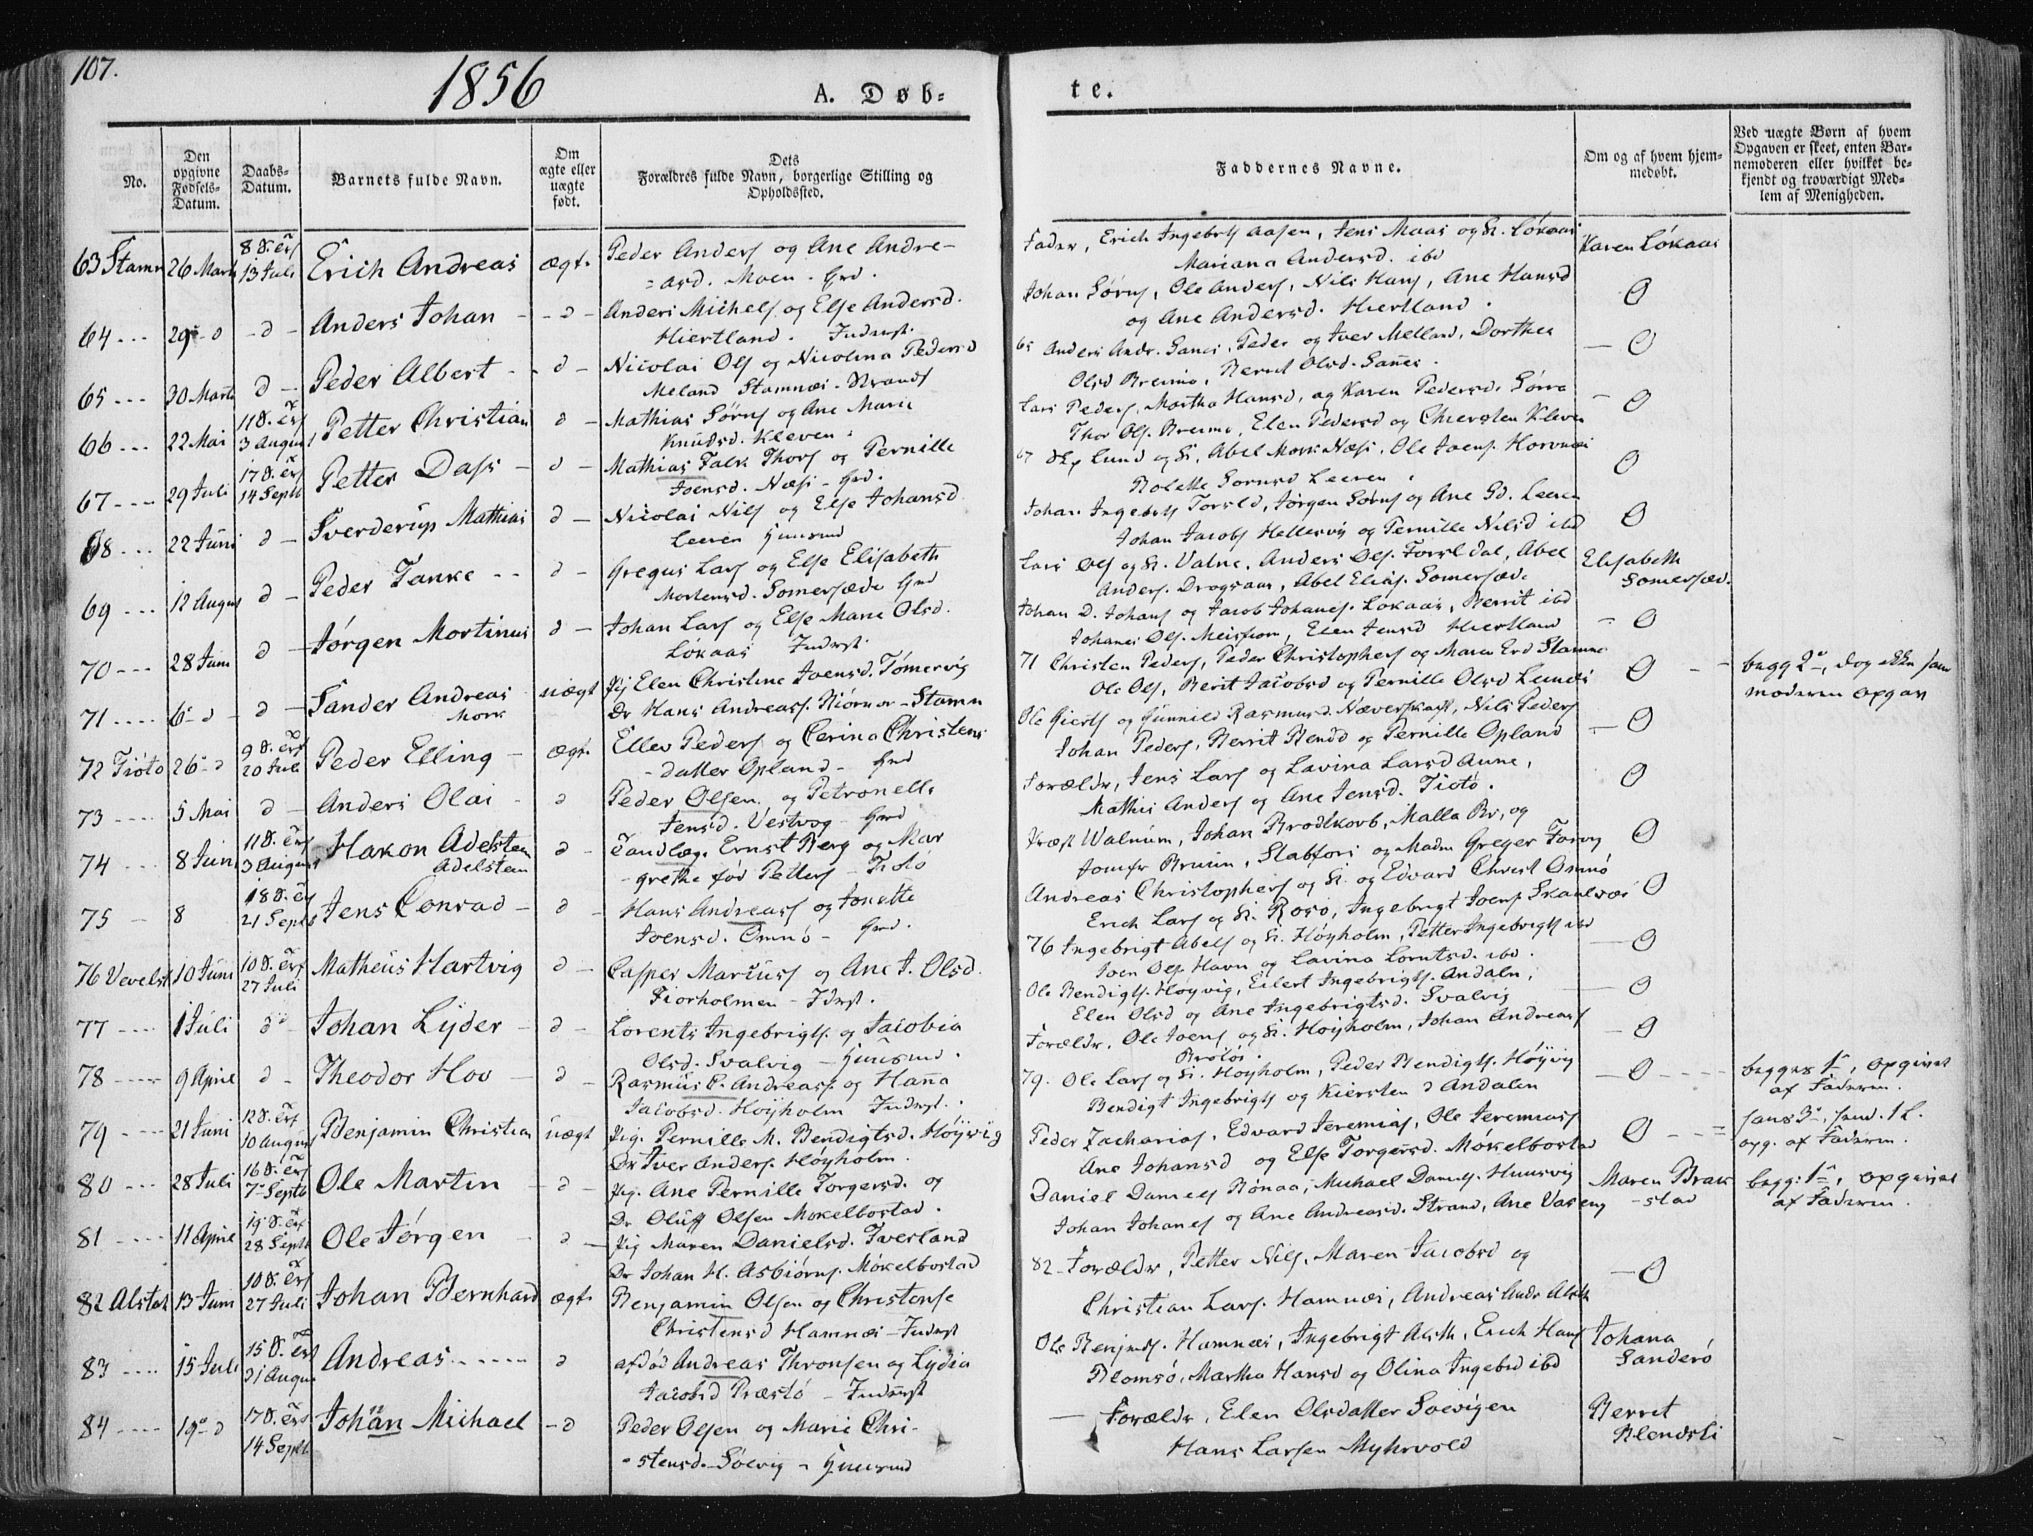 107.
1856
A. Døb-
te.
No.
Den opgivne Fødsels-Datum.
Daabs-Datum.
Barnets fulde Navn.
Om ægte eller uægte født.
Dets
Forældres fulde Navn, borgerlige Stilling og
Opholdssted.
Faddernes Navne.
Om og af hvem hjem-
medøbt.
Ved uægte Børn af hvem
Opgaven er skeet, enten Bar-
nemoderen eller hvilket be-
kjendt og troværdigt Med-
lem af Menigheden.
63 Stamn 26 Marts 13 Juli Erich Andreas ægt. Peder Anders og Ane Andre-
asd. Moen - Grd.
Fader, Erich Ingebrts Aasen, Jens Maas og K. Løkaas
Mariana Andersd. ibd
Karen Løkaas
64 29 d - d - Anders Johan - d - Anders Michels og Else Andersd.
Hiertland. Inderst.
Johan Sørns, Ole Anders, Nils Hans, Ane Hansd
og Ane Andersd. Hiertland
0
65 30 Marts d - Peder Albert - d - Nicolai Ols og Nicolina Pedersd
Meland Stamnæs - Strands
65 Anders Andr. Sanes, Peder og Iver Melland, Dorthea
Olsd Breimo, Berrit Olsd. Sannes.
0
66 22 Mai 3 August Petter Christian d - Mathias Sørns og Ane Marie
Knudsd. Kleven
Lars Peders, Martha Hansd, og Karen Pedersd. Sørra
Thor Ols. Breimo, Elen Pedersd og Chiersten Kleven
0
67 29 Juli 14 Septb Petter Dass - d - Mathias Falk Thors og Pernille
Joensd. Næss - Grd.
67 Lund og K, Abel Næss, Ole Joens Hornnæs
Leeren
0
68 22 Juni d - Sverderup Mathias d - Nicolai Nils og Else Johansd
Leeren Huusmd
Johan Ingebrts Forsld, Jørgen Sørns og Ane Leeren
Johan Jacobs Hellesvig og Pernille Nilsd ibd
0
69 12 Augus d - Peder Tanke - - d - Gregus Lars og Else Elisabeth
Mortensd. Somersæde Grd
Lars Ols og K. Valne, Anders Ols Forsldal, Abel
Anders. Dragsaas, Abel Elias. Somersæd.
Elisabeth
Somersæd.
70 28 Juni d - Jørgen Mortinus d - Johan Lars og Else Marie Olsd.
Løkaas Inderst.
Johan D. Johans og Jacob Johanes. Løkaas, Berrit ibd
Johanes Ols. Meisfiorn, Elen Jensd Hiertland
0
71 6 d - d - Sander Andreas uægt Pig Elen Christine Joensd. Tømervig
Dr Hans Andreass. - Stamn
71 Christen Peders, Peder Christophers og Maren Erd Stamnes
Ole Ols, Berit Jacobsd og Pernille Olsd
0
begg 2, dog ikke sam
moderen opgav
72 Tiøtø 26 d 20 Juli Peder Elling - ægt. Ellev Peders og Cerina Christens
datter Opland - Grd
Ole Gierts og Gunnild Rasmusd. Næverskaget, Nils Peders
Johan Peders, Berrit Bendd og Pernille Opland
0
73 5 Mai d - Anders Olai - d Peder Olsen og Petronelle
Jensd. Vestvog - Grd
Forældr, Jens Lars og Lavina Larsd Aune,
Mathis Anders og Ane Jensd. Tiøtø.
0
74 8 Juni 3 August Hakon Adelsteen d - Tandlæg. Ernst Berg og Mar
Adelsteen grethe fød Petters - Tiøtø
Præst Walnum, Johan Brodtkorb, Malla Br, og
Jomfr Bruun, og Madm Greger Forvig
0
75 8 21 Septb Jens Conrad - d - Hans Andreass og Jonette
Joensd. Omnø - Grd.
Andreas Christophers og K. og Edvard Christ Omnø
Erich Lars og K. Rosø, Ingebrigt Joens Skaalvær
0
76 Vevelst 10 Juni 27 Juli Matheus Hartvig d - Casper Marcuss og Ane J. Olsd.
Fiorholmen - Idrst.
76 Ingebrigt Abels og K. Høyholm, Petter Ingebrigts ibd
Joen Ols Havn og Lavina Lorntsd. ibd.
0
77 1 Juli d Johan Lyder - d - Lorents Ingebrigts og Jacobia
Olsd. Svalvig - Huusmd.
Ole Bendigts. Høyvig, Eilert Ingebrigts. Andaln,
Elen Olsd og Ane Ingebrigtsd. Svalvig
0
78 9 April d - Theodor Hov - d - Rasmus C. Andreass og Hanna
Jacobsd. Høyholm Inderst.
Forældr, Ole Joens og K. Høyholm, Johan Andreass
Brøløs.
0
79 21 Juni 10 August Benjamin Christian uægt Pig. Pernille M. Bendigtsd. Høyvig
Dr Iver Anders. Høyholm.
79. Ole Lars og K. Høyholm, Peder Bendigts. Høyvig
Bendigt Ingebrigts og Kiersten d Andalen
0
begges 1, opgivet
af Faderen.
80 28 Juli 7 Septb Ole Martin - d - Pig. Ane Pernille Torgersd. og
Dr Oluff Olsen Mokelbostad.
Peder Zacharias, Edvard Jeremias, Ole Jeremiass
Ane Johansd og Else Torgersd. Møkelbostad
0
hans 3, hend. 1 L.
opg. af Faderen.
81 11 April 28 Septb Ole Jørgen - d - Pig Maren Danielsd. Iverland
Dr Johan H. Asbiørns. Møkelbostad
Daniel Daniels Rønaa, Michael Daniels. Huusvig
Johan Johanes og Ane Andreasd. Strand, Ane Vaseng
Maren Bræk
stad
begg: 1, opgivet
af Faderen.
82 Alstah 13 Juni 27 Juli Johan Bernhard ægt. Benjamin Olsen og Christense
Christensd Hamnæs - Inderst
82 - Forældr, Petter Nils, Maren Jacobsd og
Christian Lars. Hamnæs, Andreas Andr Alsth
0
83 15 Juli 31 August Andreas d afdød Andreas Thronsen og Lydia
Jacobsd Præstø - Inderst
Ole Benjms. Hamnæs, Ingebrigt Alsth, Erich Hans
Blomsø, Martha Hansd og Olina Ingebd ibd
Johana
Sanderø
84 19 d 14 Septb Johan Michael - d Peder Olsen og Marie Chri-
stensd. Søevig - Huusmd
Forældr, Elen Olsdatter Soevigen
Hans Larsen Myhrvold
Berret
Blendsli